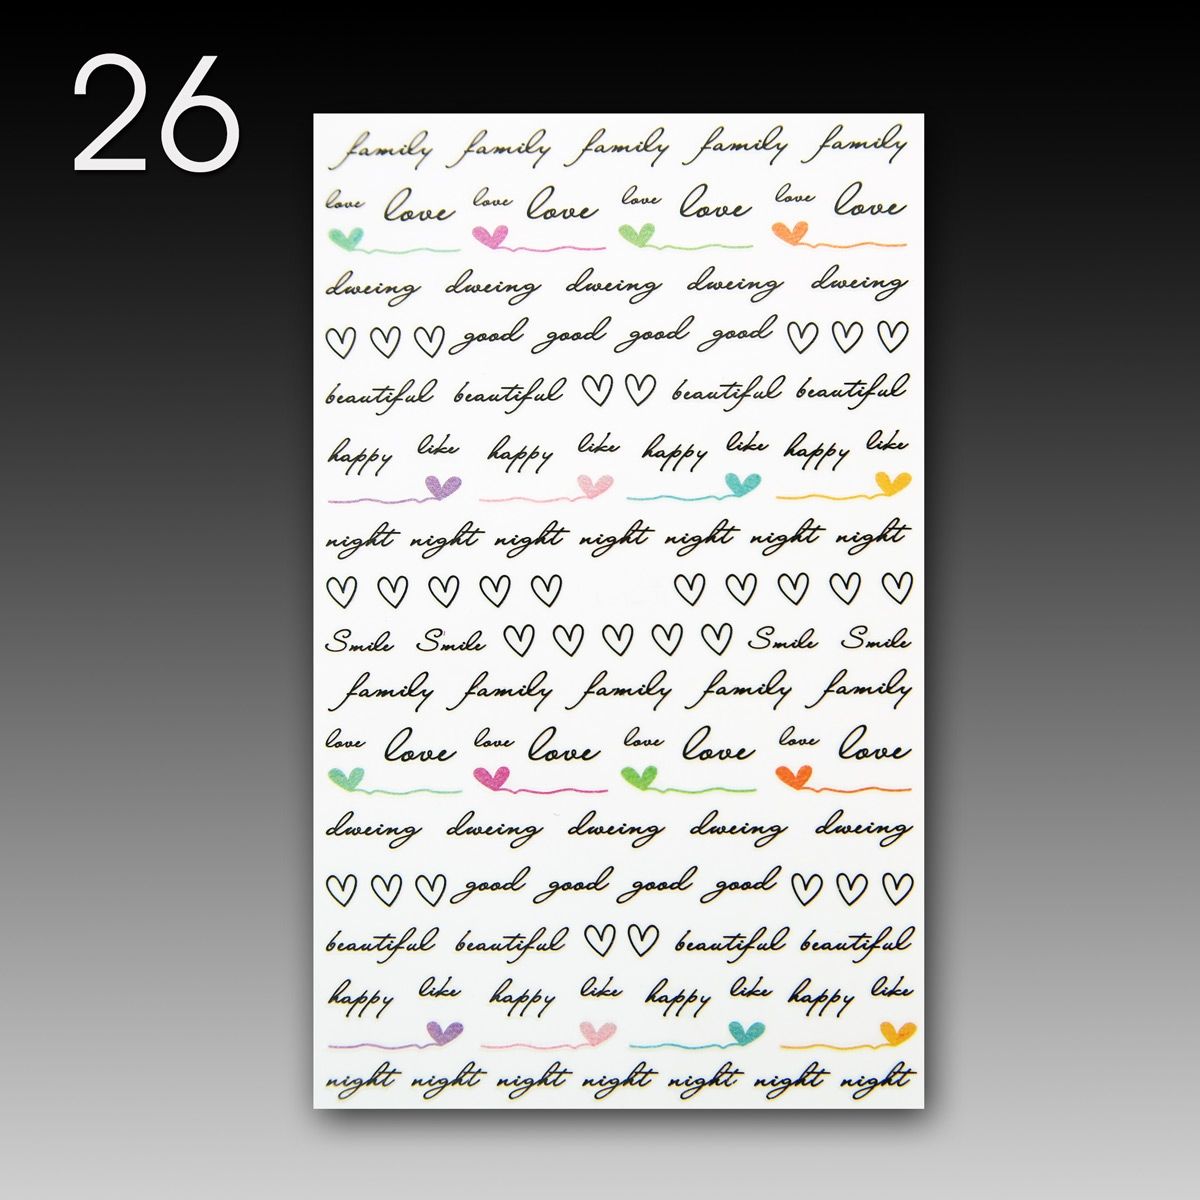 26
family family family family family
love love love love love love love love
dweing dweing dweing dweing dweing
good good good good
beautiful beautiful beautiful beautiful
happy like happy like happy like happy like
night night night night night night night
Smile Smile Smile Smile
family family family family family
love love love love love love love love
dweing dweing dweing dweing dweing
good good good good
beautiful beautiful beautiful beautiful
happy like happy like happy like happy like
night night night night night night night